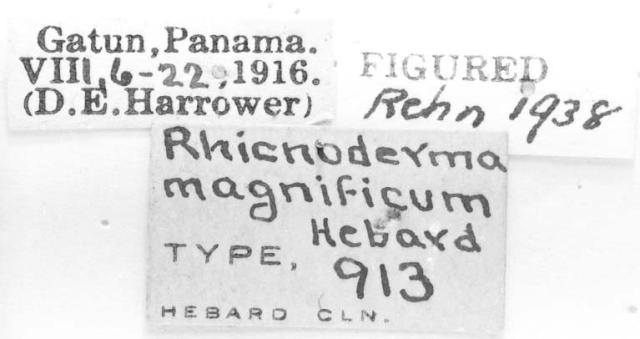 Gatun, Panama.
VIII, 6-22, 1916.
(D.E.Harrower)
FIGURED
Rehn 1938
Rhicnoderma
magnificum
Hebard
TYPE, 913
HEBARD CLN.